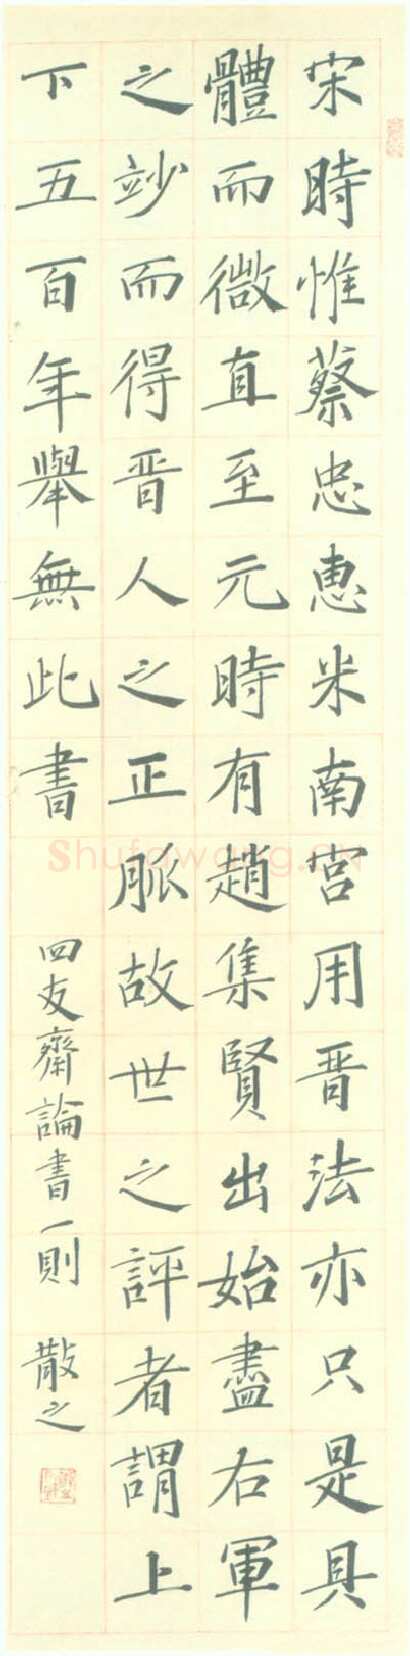 宋時惟蔡忠惠米南宮用晋法亦只是具
體而微直至元時有趙集賢出始盡右軍
之竗而得晋人之正脈故世之評者謂上
下五百年舉無此書
四友齋論書一則 散之
Shufawang.cn